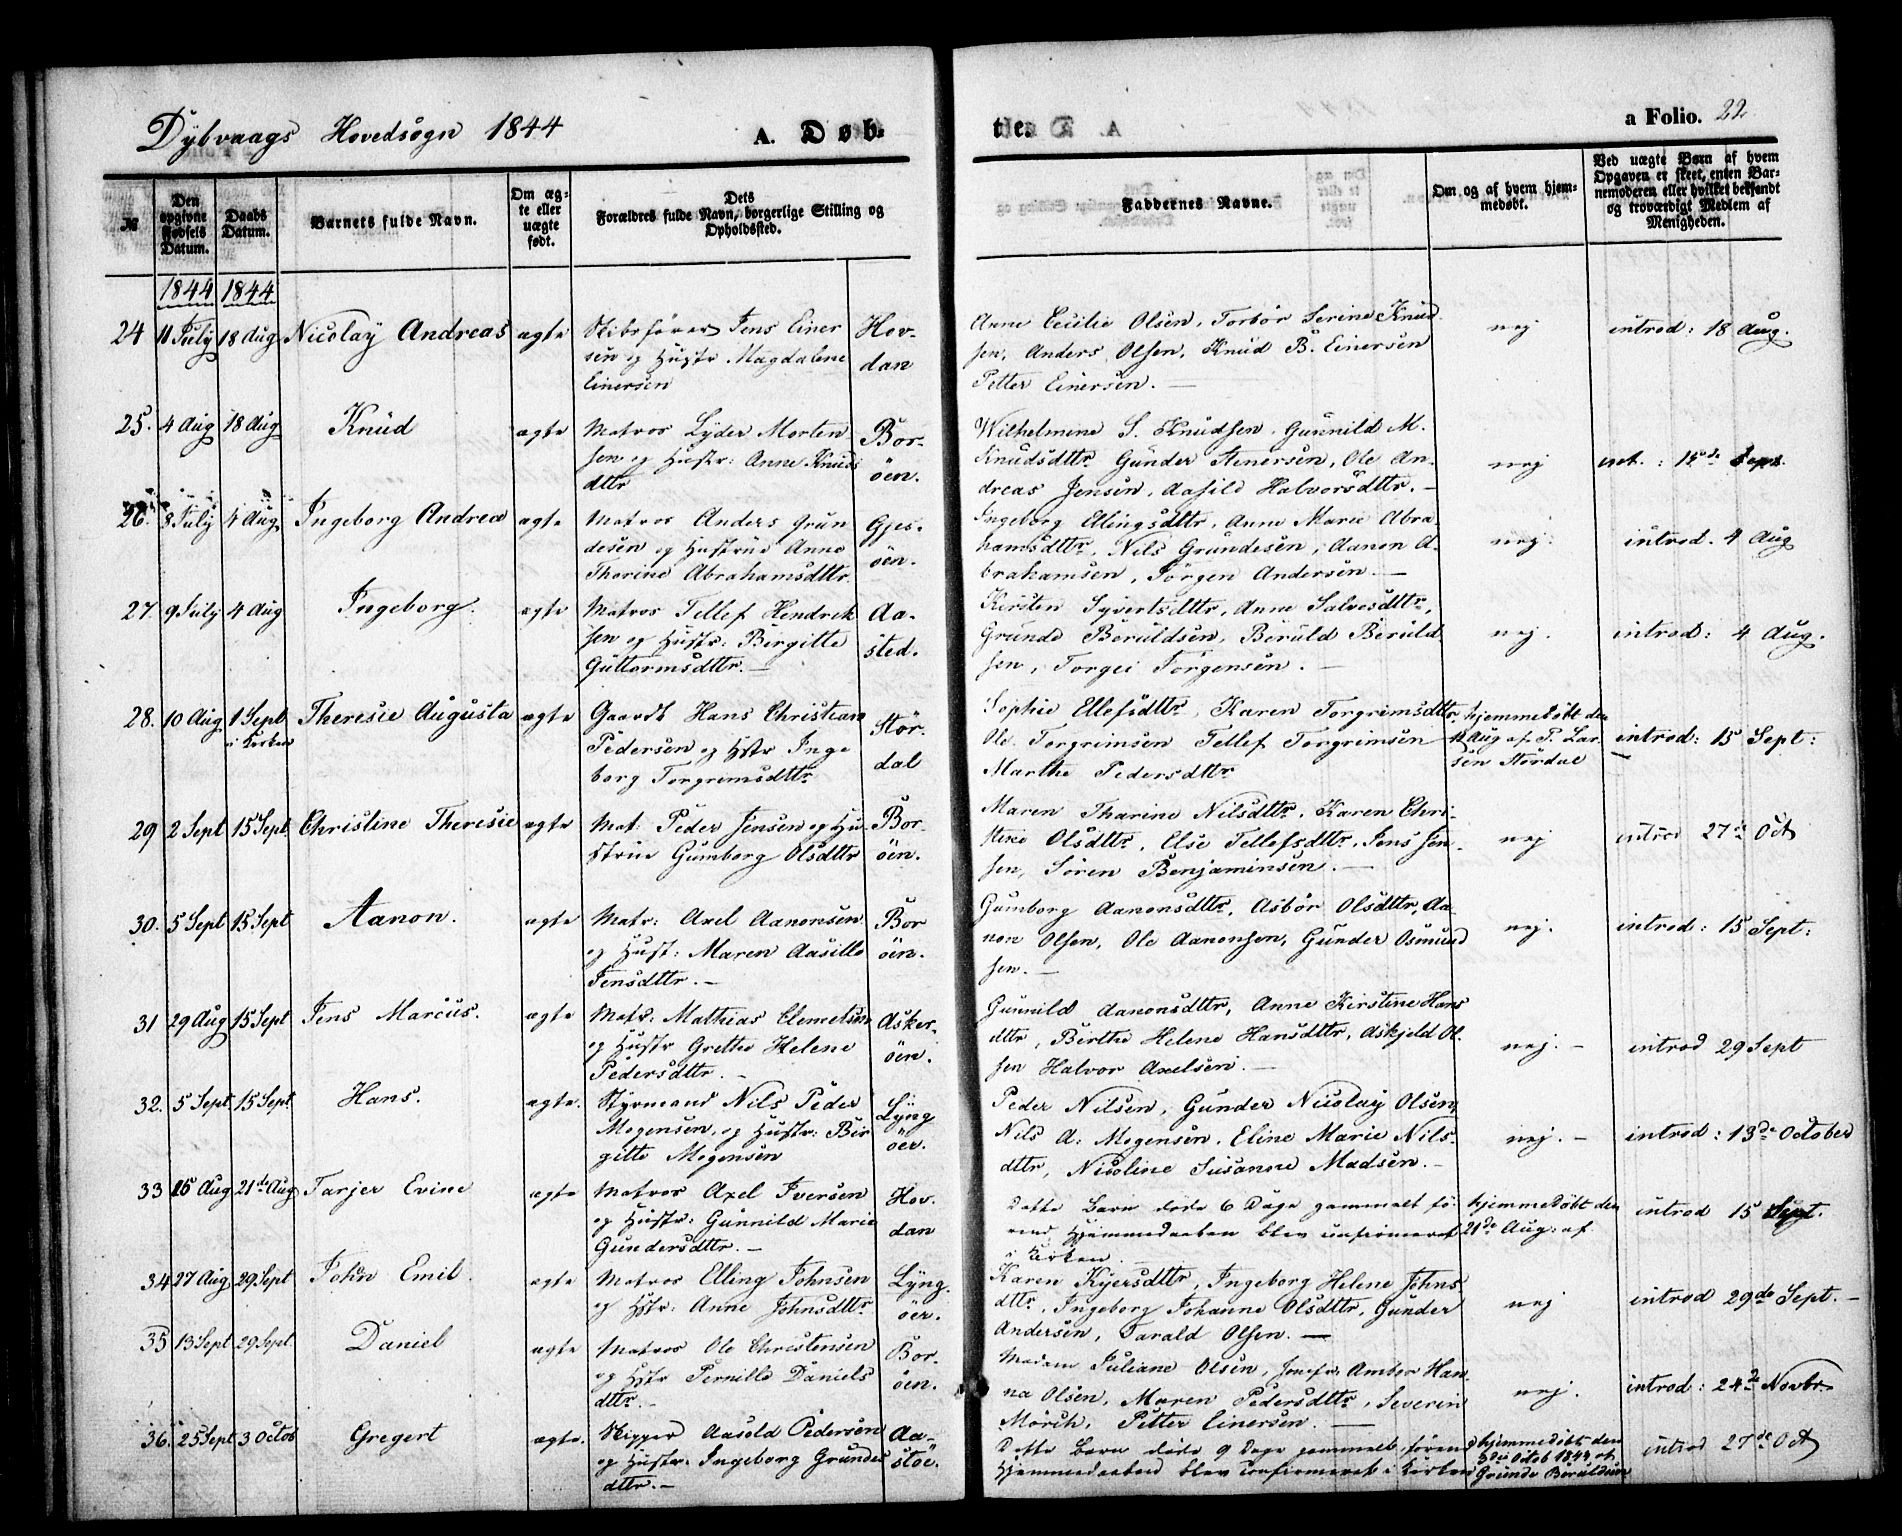 Dybvaags Hovedsogn 1844
A. Døb-
te.
a Folio. 22
№
Den opgivne Fødsels Datum.
Daabs Datum.
Barnets fulde Navn.
Om æg-
te eller
uægte
født.
Dets
Forældres fulde Navn, borgerlige Stilling og
Opholdssted.
Faddernes Navne.
Om og af hvem hjem-
medøbt.
Ved uægte Børn af hvem
Opgaven er skeet, enten Bar-
nemoderen eller hvilket bekjendt
og troværdigt Medlem af
Menigheden.
1844 1844
24 11 July 18 Aug Nicolay Andreas ægte
Skibsfører Jens Einer
sen og Hustr. Magdalene
Einersen
Hov-
dan
Anne Cecilie Olsen, Torbør Serine Knud
sen, Anders Olsen, Knud B. Einersen
Petter Einersen. —
nej
introd: 18 Aug.
25. 4 Aug 18 Aug Knud ægte
Matros Lyder Morten
sen og Hustr: Anne Knuds
dttr
Bor-
öen.
Wilhelmine S. Knudsen, Gunnild M.
Knudsdttr Gunder Stenersen, Ole An-
dreas Jensen, Aasild Halvorsdttr. —
nej
int. : 15de Sept.
26. 8 July 4 Aug Ingeborg Andrea ægte
Matros Anders Grun
desen og Hustrue Anne
Thorine Abrahamsdttr.
Gjes-
öen.
Ingeborg Ellingsdttr, Anne Marie Abra-
hamsdttr, Nils Grundesen, Aanon A-
brahamsen, Jörgen Andersen. —
nej.
introd. 4 Aug
27. 9 July 4 Aug Ingeborg. ægte
Matros Tellef Hendrik
sen og Hustr: Birgitte
Guttormsdttr. —
Aa-
sted.
Kirsten Syvertsdttr, Anne Salvesdttr,
Grunde Beruldsen, Beruld Beruld
sen, Torgei Jörgensen. —
nej.
introd: 4 Aug.
28. 10 Aug 1 Sept i Kirken Theresie Augusta ægte
Gaardb Hans Christian
Pedersen og Hstr Inge
borg Torgrimsdttr
Stör-
dal
Sophie Ellefsdttr, Karen Torgrimsdttr
Ole Torgrimsen Tellef Torgrimsen
Marthe Pedersdttr
hjemmedöbt den
12 Aug af P. Lar-
sen Stördal
introd: 15 Sept:
29 2 Sept 15 Sept. Christine Theresie ægte
Mat: Peder Jensen og Hu-
strue Gumborg Olsdttr
Bor-
öen.
Maren Tharine Nilsdttr, Karen Chri-
stine Olsdttr, Else Tellefsdttr, Jens Jen-
sen, Sören Benjaminsen. —
nej
introd 27de Oct
30. 5 Sept 15 Sept Aanon. ægte
Matr: Axel Aanonsen
og Hust: Maren Aasille
Jensdttr. —
Bor
öen.
Gumborg Aanonsdttr, Asbör Olsdttr, Aa-
non Olsen, Ole Aanonsen, Gunder Osmund
sen. —
nej.
introd: 15 Sept:
31 29 Aug 15 Sept Jens Marcus. ægte
Matr: Mathias Clemetsen
og Hustr Grethe Helene
Pedersdttr. —
Asker-
öen.
Gunnild Aanonsdttr, Anne Kirstine Hans
dttr, Birthe Helene Hansdttr, Askjeld Ol-
sen Halvor Axelsen. —
nej. —
introd 29 Sept
32. 5 Sept 15 Sept Hans. ægte.
Styrmand Nils Peder
Mogensen, og Hustr: Bir
gitte Mogensen
Lyng
öer.
Peder Nilsen, Gunder Nicolay Olsen,
Nils A: Mogensen, Eline Marie Nils-
dttr, Nicoline Susanne Madsen. —
nej. —
introd: 13de October
33 15 Aug 21de Aug Tarjer Evine ægte
Matros Axel Iversen
og Hustr: Gunnild Marie
Gundersdttr. —
Hov-
dan
Dette Barn döde 6 Dage gammelt fö-
rend Hjemmedaaben blev confirmeret
i Kirken.
hjemmedöbt den
21de Aug: af
introd 15 Sept.
34 27 Aug 29 Sept John Emil. ægte
Matros Elling Johnsen
og Hstr: Anne Johnsdttr
Lyng-
öer.
Karen Kjersdttr, Ingeborg Helene Johns
dttr, Ingeborg Johanne Olsdttr, Gunder
Andersen, Tarald Olsen. —
nej
introd 29de Sept. —
35 13 Sept 29 Sept. Daniel ægte
Matros Ole Christensen
og Hstr Pernille Daniels
dttr. —
Bor-
öen.
Madam Juliane Olsen, Jomfr: Amber Han-
na Olsen, Maren Pedersdttr, Severin
Mörch, Petter Einersen. —
nej.
introd: 24de Novbr
36. 25 Sept 3 Octob Gregert ægte.
Skipper Aasold Pedersen
og Hustr: Ingeborg Grundes
dttr. —
Aa-
stöe.
Dette Barn döde 9 Dage gammelt, förend
Hjemmedaaben blev confirmeret i Kirken
hjemmedöbt den
3die Octob 1844, af
Grunde Beruldsen
introd 27de Oct